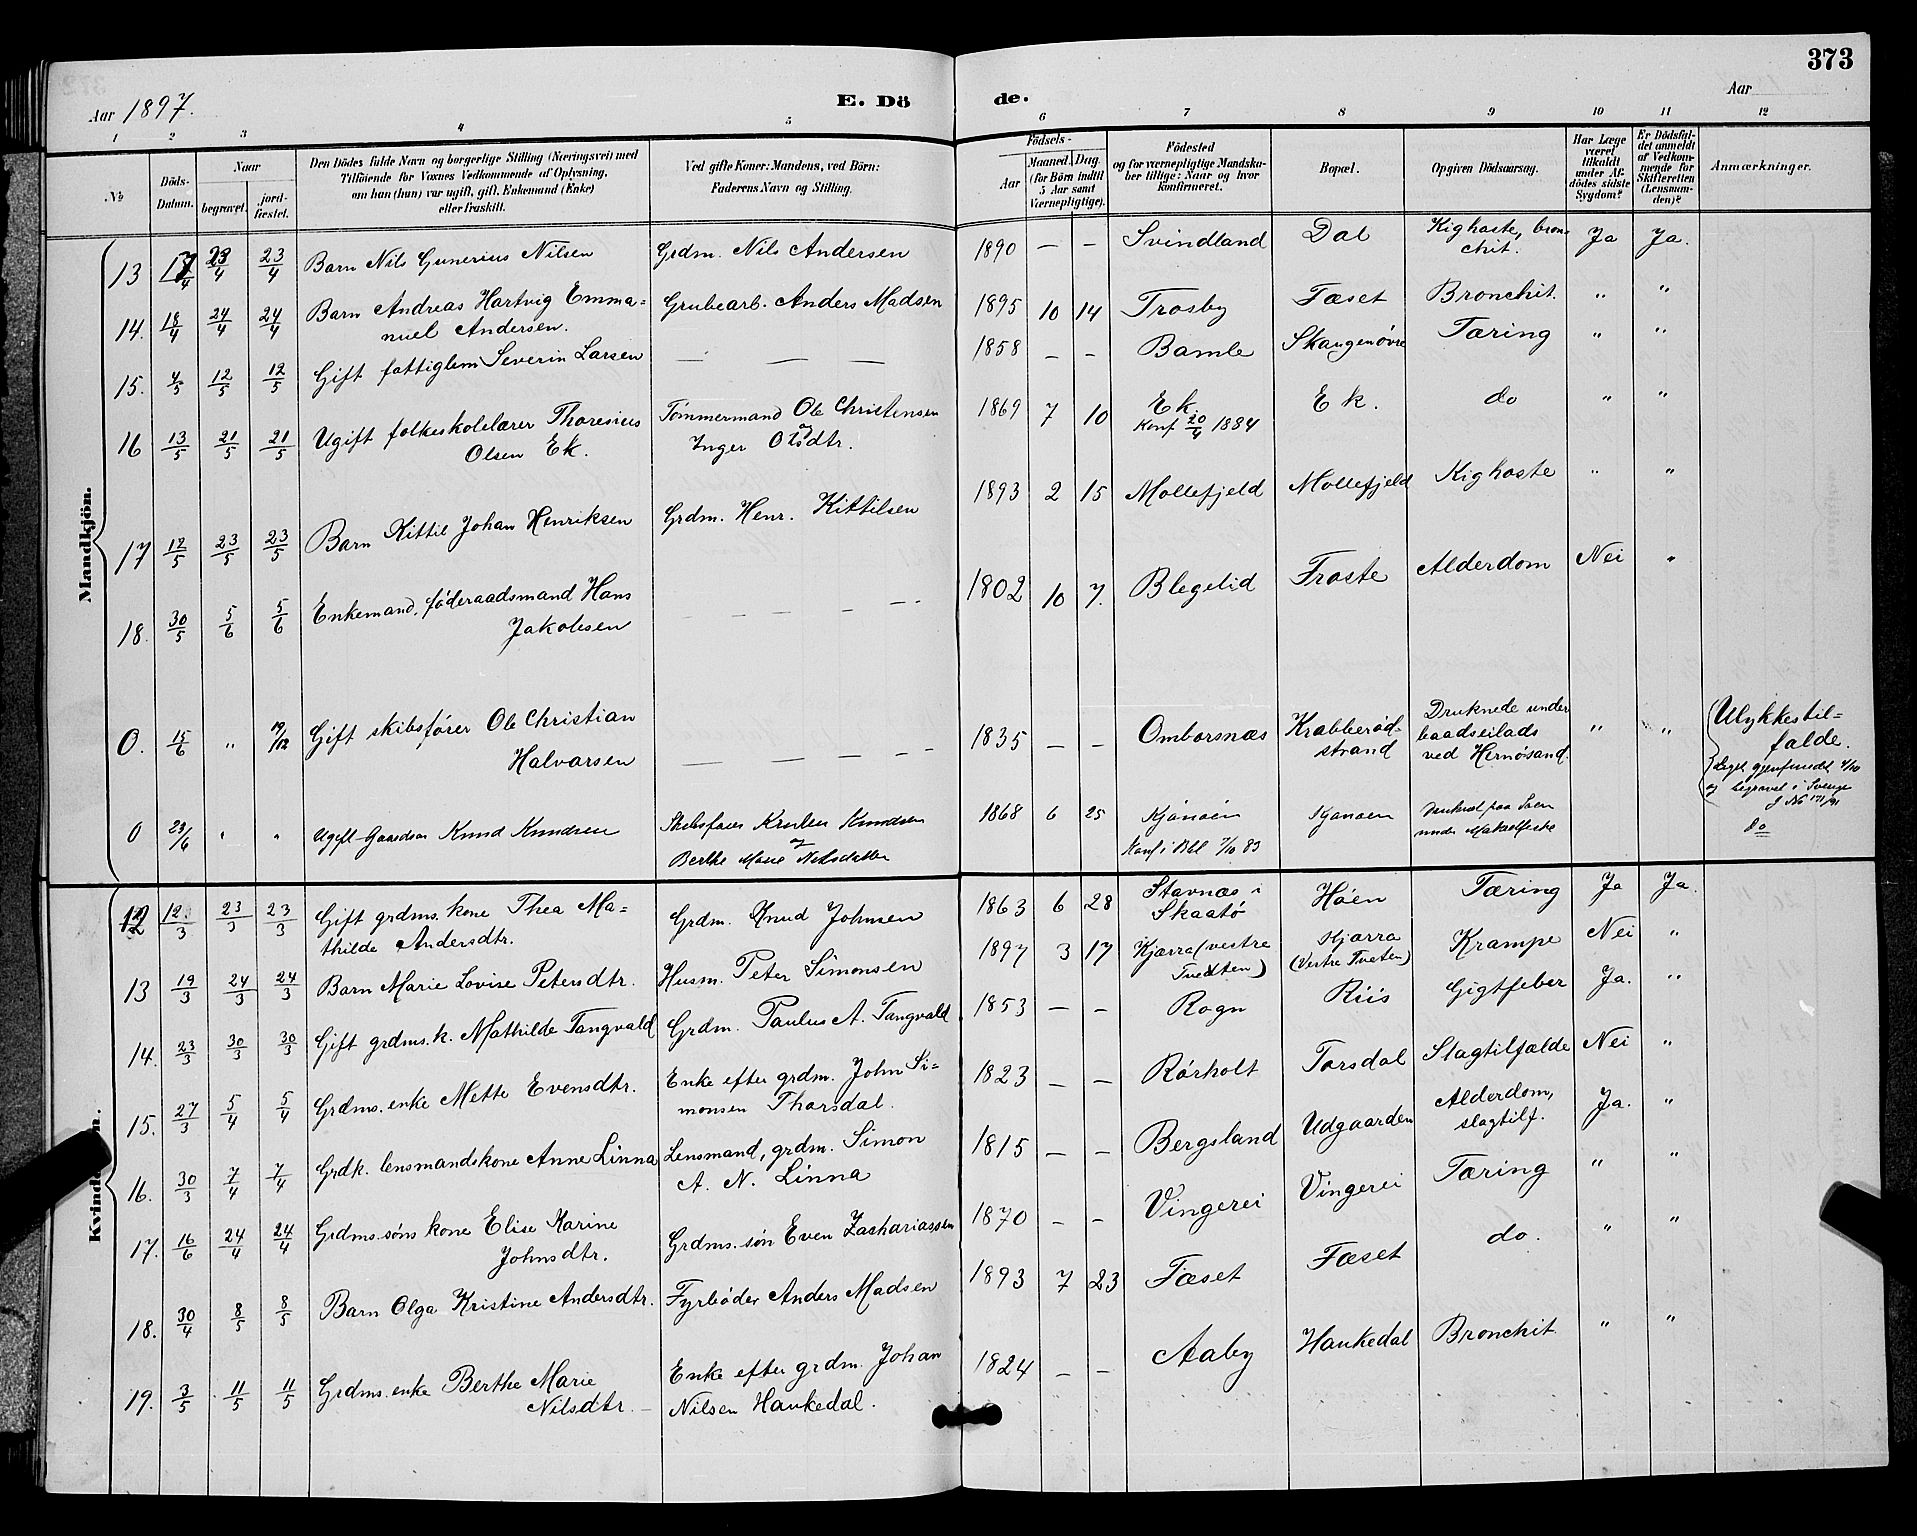 373
Aar 1897.
E. Dö
de.
Aar
1 2 3 4 5 6 7 8 9 10 11 12
No
Döds-Datum.
Naar
begravet.
jord-fæstet.
Den Dödes fulde Navn og borgerlige Stilling (Næringsvei) med
Tilföiende for Voxnes Vedkommende af Oplysning,
om han (hun) var ugift, gift, Enkemand (Enke)
eller fraskilt.
Ved gifte Koner: Mandens, ved Börn:
Faderens Navn og Stilling.
Födsels-
Aar
Maaned. Dag.
(for Börn indtil
5 Aar samt
Værnepligtige).
Födested
og for værnepligtige Mandska-
ber tillige: Naar og hvor
konfirmeret.
Bopæl.
Opgiven Dödsaarsag.
Har Læge
været
tilkaldt
under Af-
dödes sidste
Sygdom?
Er Dödsfal-
det anmeldt
af Vedkom-
mende for
Skifteretten
(Lensman-
den)?
Anmærkninger.
Mandkjön.
13 17/4 23/4 23/4 Barn Nils Gunerius Nilsen Grdm. Nils Andersen 1890 — — Svindland Dal Kighoste, bron-
chit. Ja Ja.
14. 18/4 24/4 24/4 Barn Andreas Hartvig Emma=
nuel Andersen. Grubearb. Anders Madsen 1895 10 14 Trosby Fæset Bronchit. " "
15. 4/5 12/5 12/5 Gift fattiglem Severin Larsen — — — 1858 — — Bamle Skaugenøvre Tæring " "
16 13/5 21/5 21/5 Ugift folkeskolelærer Thoresius
Olsen Ek. Tømmermand Ole Christensen
og
Inger Olsdtr. 1869 7 10 Ek.
Konf 20/4 1884 Ek. do " "
17 12/5 23/5 23/5 Barn Kittil Johan Henriksen Grdm. Henr. Kittilsen 1893 2 15 Mollefjeld Mollefjeld Kighoste " "
18. 30/5 5/6 5/6 Enkemand, føderaadsmand Hans
Jakobsen — — — — 1802 10 7. Blegelid Froste Alderdom Nei "
0. 15/6 " 19/12 Gift skibsfører Ole Christian
Halvorsen — — — — — 1835 — — Omborsnæs Krabberød-
strand Druknede under
baadseilads
ved Hernøsand. " " Ulykkestil=
falde.
Liget gjenfundet
og begravet i Sverige
0 23/6 " " Ugift Knud Knudsen Knudsen
og
Berthe Marie Nilsdatter 1868 6 25 Kjønøen
Konf i 83 Kjønøen paa Søen
under Makrelfiske do
Kvindekjön.
12 12/3 23/3 23/3 Gift grdms. kone Thea Ma=
thilde Andersdtr. Grdm. Knud Johnsen 1863 6 28 Stavnæs i
Skaatø Høen Tæring Ja Ja.
13 19/3 24/3 24/3 Barn Marie Lovise Petersdtr. Husm. Peter Simonsen 1897 3 17 Kjærra (vestre
Tvedten) Kjærra
(Vestre Tveten) Krampe Nei "
14. 23/3 30/3 30/3 Gift grdms. k. Mathilde Tangvald Grdm. Paulus A. Tangvald 1853 — — Rogn Riis Gigtfeber Ja. "
15. 27/3 5/4 5/4 Grdms. enke Mette Evensdtr. Enke efter grdm. John Si=
monsen Thorsdal. 1823 — — Rørholt Torsdal Slagtilfælde Nei "
16. 30/3 7/4 7/4 Grdk. lensmandskone Anne Linna Lensmand, grdm. Simon
A. N. Linna 1815 — — Bergsland Udgaarden Alderdom,
slagtilf. Ja. "
17. 16/6 24/4 24/4 Grdms. søns kone Elise Karine
Johnsdtr. Grdms. søn Even Zachariassen 1870 — — Vingerei Vingerei Tæring " "
18. 30/4 8/5 8/5 Barn Olga Kristine Andersdtr. Fyrbøder Anders Madsen 1893 7 23 Fæset Fæset do. " "
19. 3/5 11/5 11/5 Grdms. enke Berthe Marie
Nilsdtr. — Enke efter grdm. Johan
Nilsen Haukedal. 1824 — — Aaby Haukedal Bronchit " "